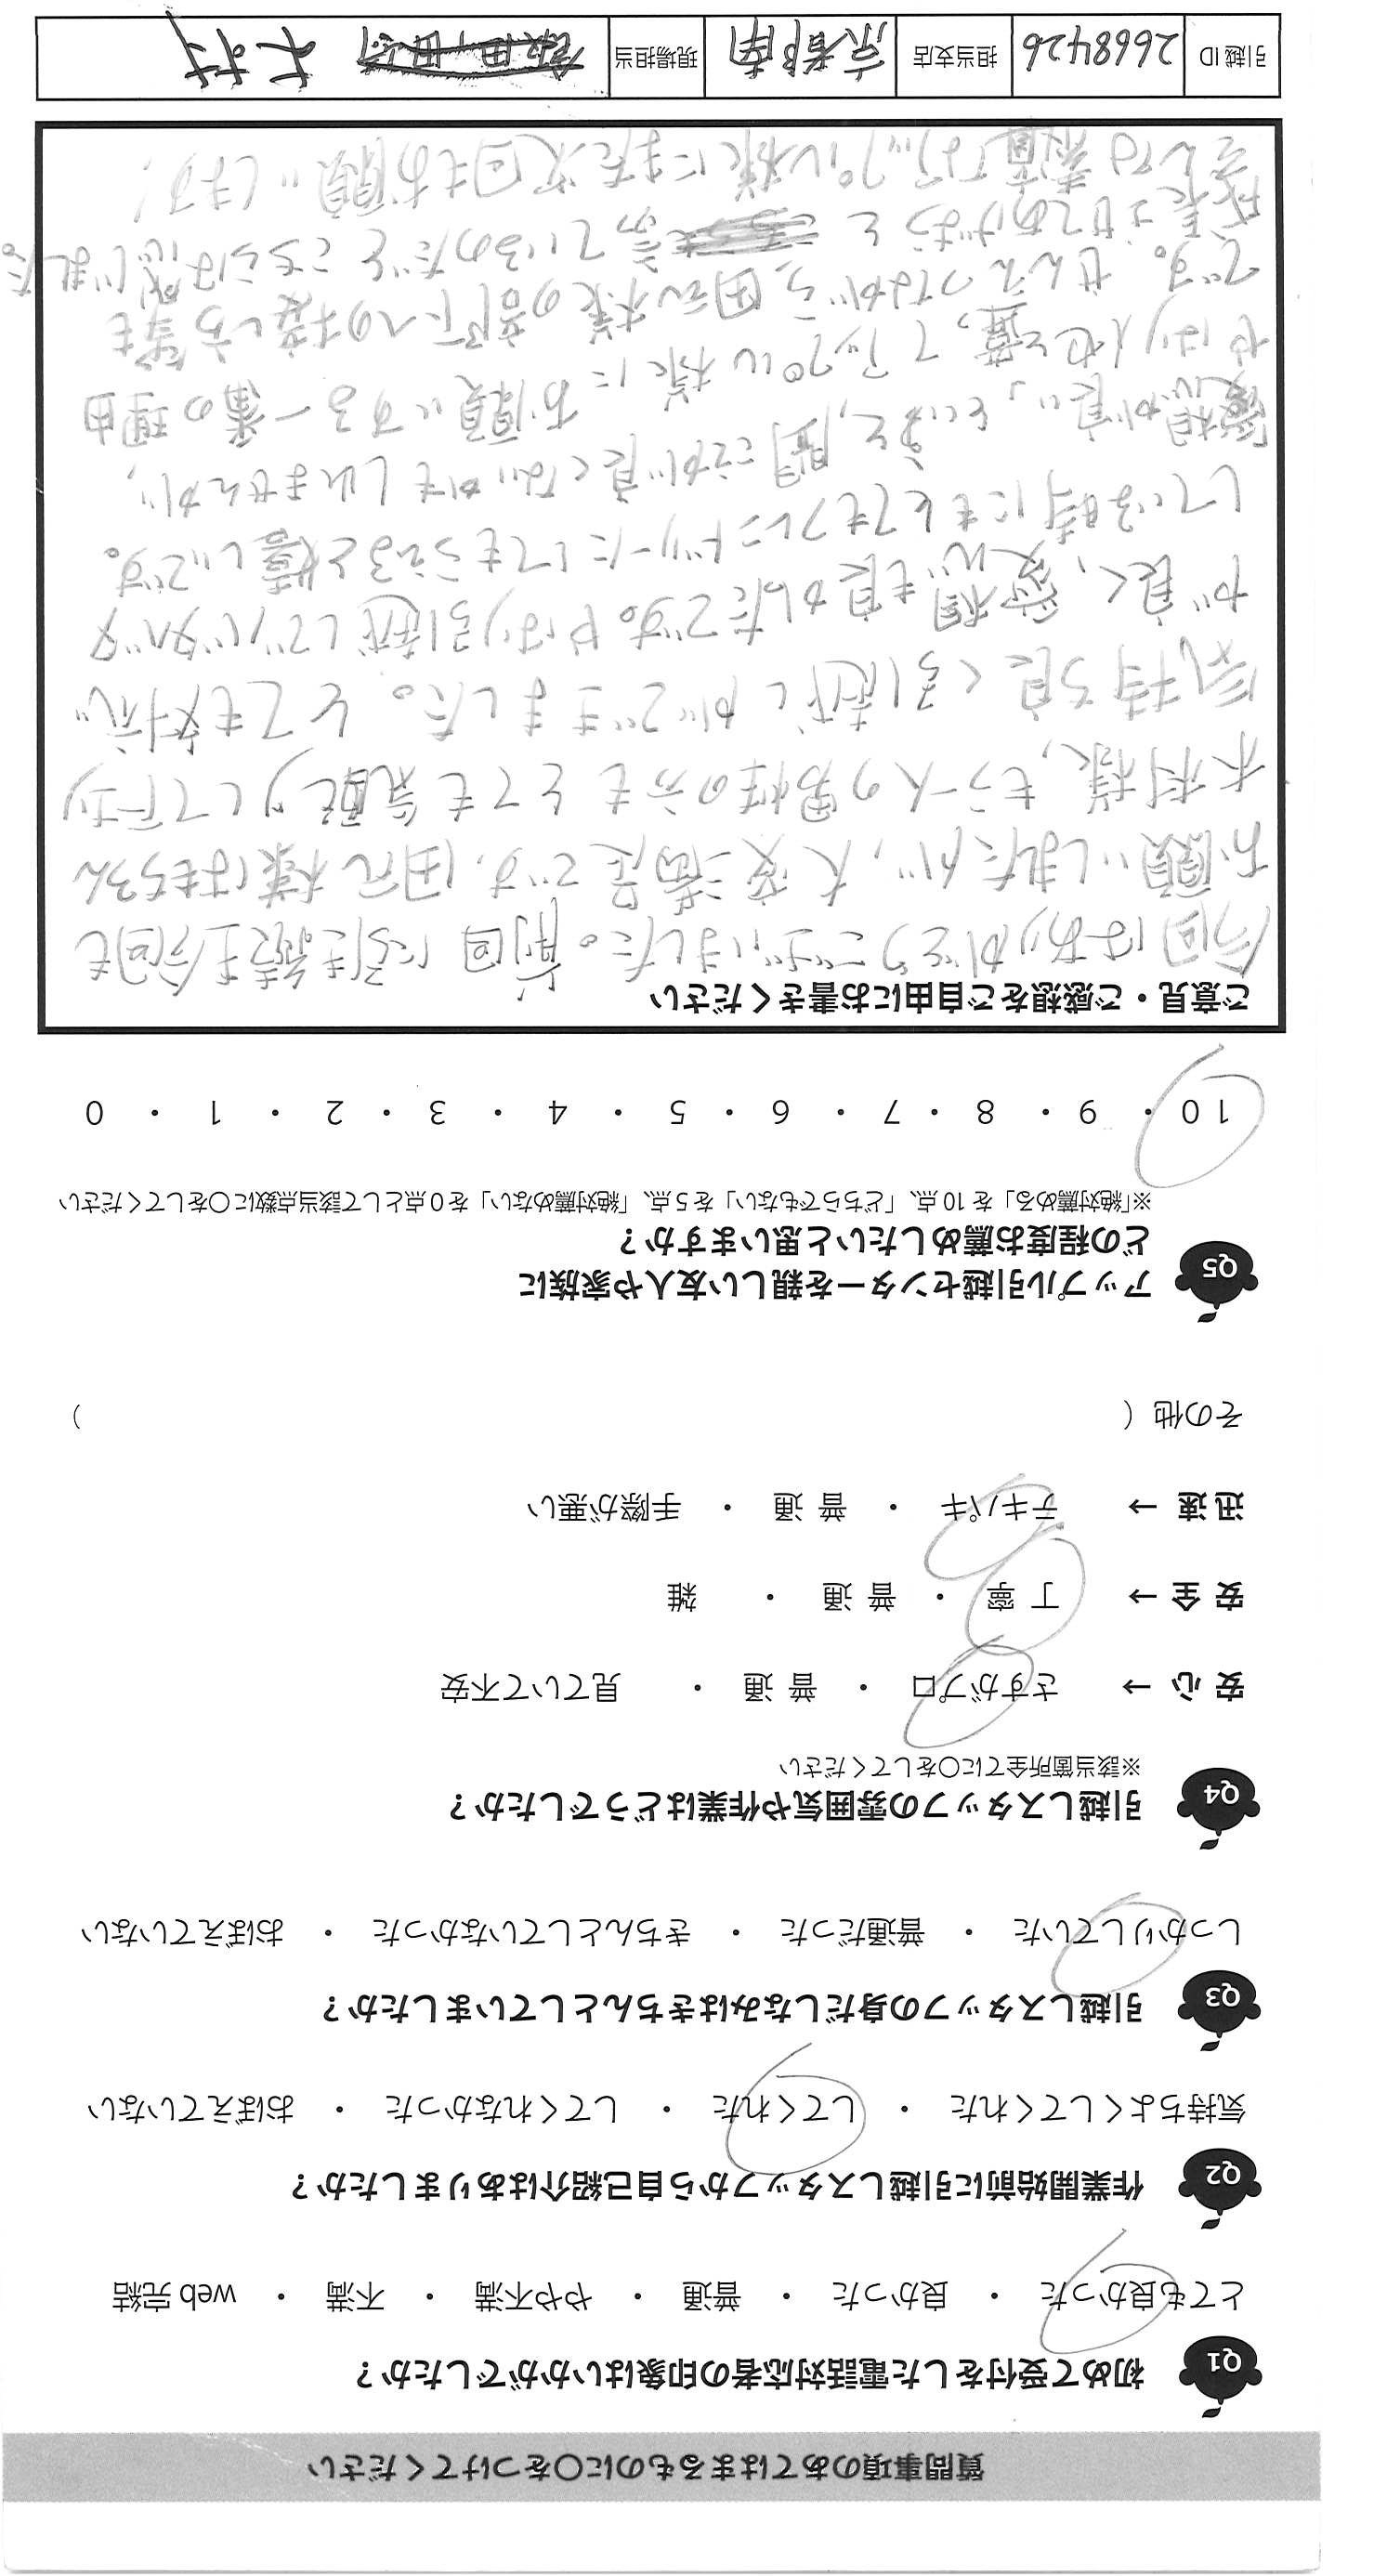 質問事項のあてはまるものに〇をつけてください
Q1 初めて受付をした電話対応者の印象はいかがでしたか？
とても良かった ・ 良かった ・ 普通 ・ やや不満 ・ 不満 ・ web 完結
Q2 作業開始前に引越しスタッフから自己紹介はありましたか？
気持ちよくしてくれた ・ してくれた ・ してくれなかった ・ おぼえていない
Q3 引越しスタッフの身だしなみはきちんとしていましたか？
しっかりしていた ・ 普通だった ・ きちんとしていなかった ・ おぼえていない
Q4 引越しスタッフの雰囲気や作業はどうでしたか？
※該当箇所全てに〇をしてください
安 心 → さすがプロ ・ 普 通 ・ 見ていて不安
安 全 → 丁 寧 ・ 普 通 ・ 雑
迅 速 → テキパキ ・ 普 通 ・ 手際が悪い
その他（ ）
Q5 アップル引越センターを親しい友人や家族に
どの程度お薦めしたいと思いますか？
※「絶対薦める」を 10 点、「どちらでもない」を 5 点、「絶対薦めない」を 0 点として該当点数に〇をしてください
10 ・ 9 ・ 8 ・ 7 ・ 6 ・ 5 ・ 4 ・ 3 ・ 2 ・ 1 ・ 0
ご意見・ご感想をご自由にお書きください
今回はありがとうございました。前回に引き続き今回も
お願いしましたが、大変満足です。田元様はもちろん
木村様、もう一人の男性の方もとても気配りして下さり
気持ち良く引越しができました。とても対応が
が良く、愛想も良かったです。やはり引越しでバタバタ
している時にもとてもフレンドリーにしてもらえると嬉しいです。
「愛想が良い」というと、聞こえが良くないかもしれませんが、
やはり人セを置いてアップル様にお願いする一番の理由
です。せんえつながら、田元様の部下への接し方等も
成長させてあげようと 言っているのだとこちらは感じました。
素直 アップル様にまた次回もお願いします！
引越 ID 2668426 担当支店 京都南 現場担当 木村